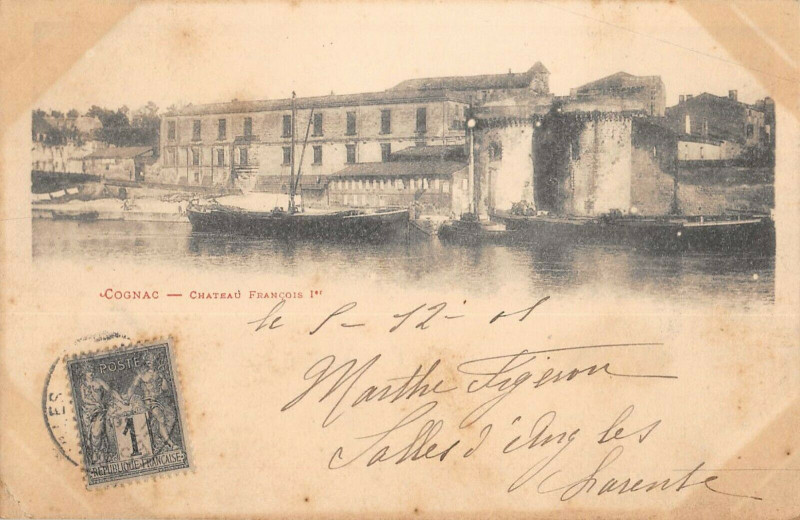 COGNAC — CHATEAU FRANÇOIS Ier
le 5 - 12 - 01
Marthe Figeron
Salles d'Angles
Charente
POSTES
1
REPUBLIQUE FRANÇAISE
LES